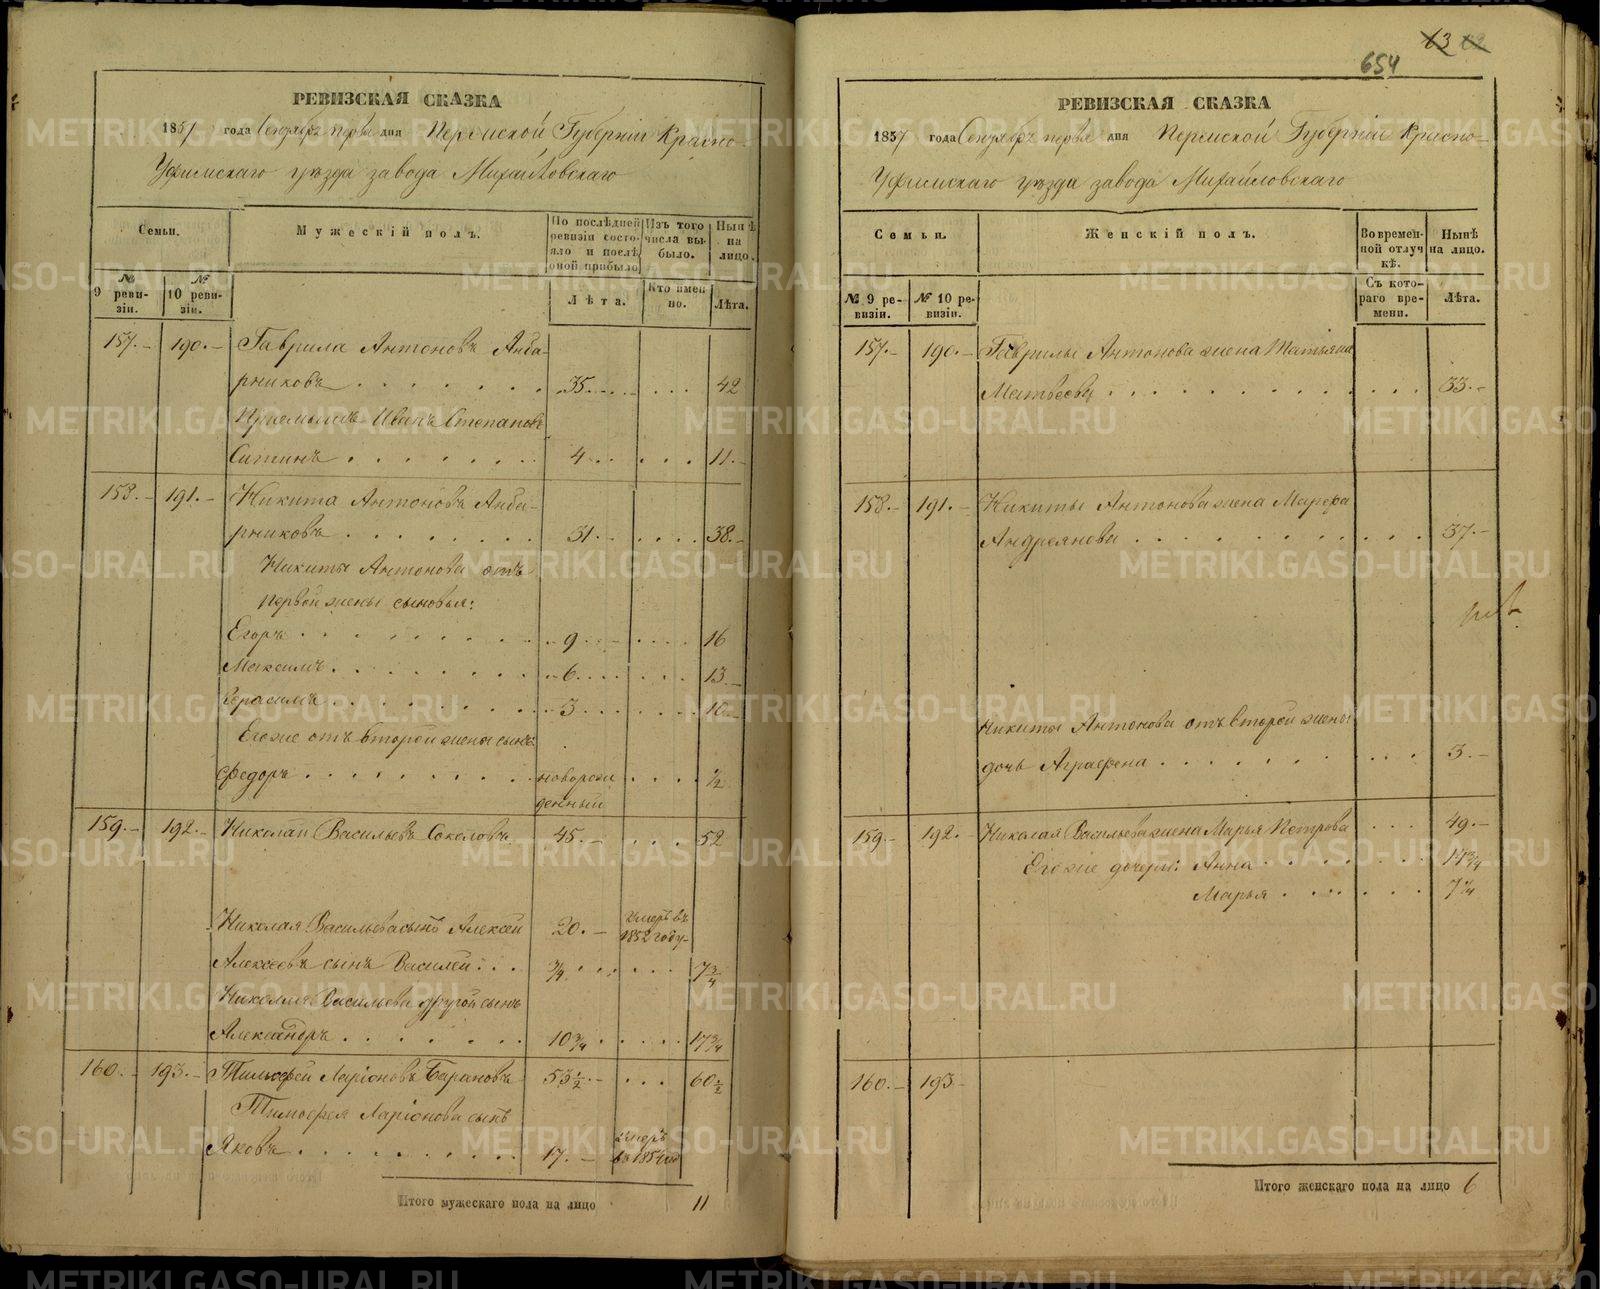 РЕВИЗСКАЯ СКАЗКА
1857 года Сентября первого дня Пермской Губерніи Красно-
Уфимскаго уѣзда завода Михайловскаго
Семьи.
Мужескій полъ.
По послѣдней ревизіи состояло и послѣ оной прибыло
Изъ того числа выбыло.
Нынѣ на лицо.
№ 9 ревизіи.
№ 10 ревизіи.
Лѣта.
Кто именно.
Лѣта.
157.- 190.- Гаврила Антоновъ Анба-
рниковъ 35 42
Пріемышъ Иванъ Степановъ
Ситинъ 4 11.-
158.- 191.- Никита Антоновъ Анба-
рниковъ 31 38.-
Никиты Антонова отъ
первой жены сыновья:
Егоръ 9 16
Максимъ 6 13
Герасимъ 3 10
Егоже отъ второй жены сынъ
Федоръ новорож 1/2
денный
159.- 192.- Николай Васильевъ Соколовъ 45.- 52
Николая Васильева сынъ Алексей 20.- Умеръ въ
1852 году
Алексеевъ сынъ Василей 3/4 7 3/4
Николая Васильева другой сынъ
Александръ 10 3/4 17 3/4
160.- 193.- Тимофей Ларіоновъ Барановъ 53 1/2 60 1/2
Тимофея Ларіонова сынъ
Яковъ 17.- Умеръ
въ 1854 год
Итого мужескаго пола на лицо 11
654
РЕВИЗСКАЯ СКАЗКА
1857 года Сентября первого дня Пермской Губерніи Красно-
Уфимскаго уѣзда завода Михайловскаго
Семьи.
Женскій полъ.
Во временной отлучкѣ.
Нынѣ на лицо.
№ 9 ревизіи.
№ 10 ревизіи.
Съ котораго времени.
Лѣта.
157.- 190.- Гаврилы Антонова жена Татьяна
Матвеева 33.-
158.- 191.- Никиты Антонова жена Марфа
Андреянова 37.-
Никиты Антонова отъ второй жены
дочь Аграфена 3.-
159.- 192.- Николая Васильева жена Марья Петрова 49.-
Егоже дочери: Анна 14 3/4
Марья 7 1/4
160.- 193
Итого женскаго пола на лицо 6
METRIKI.GASO-URAL.RU